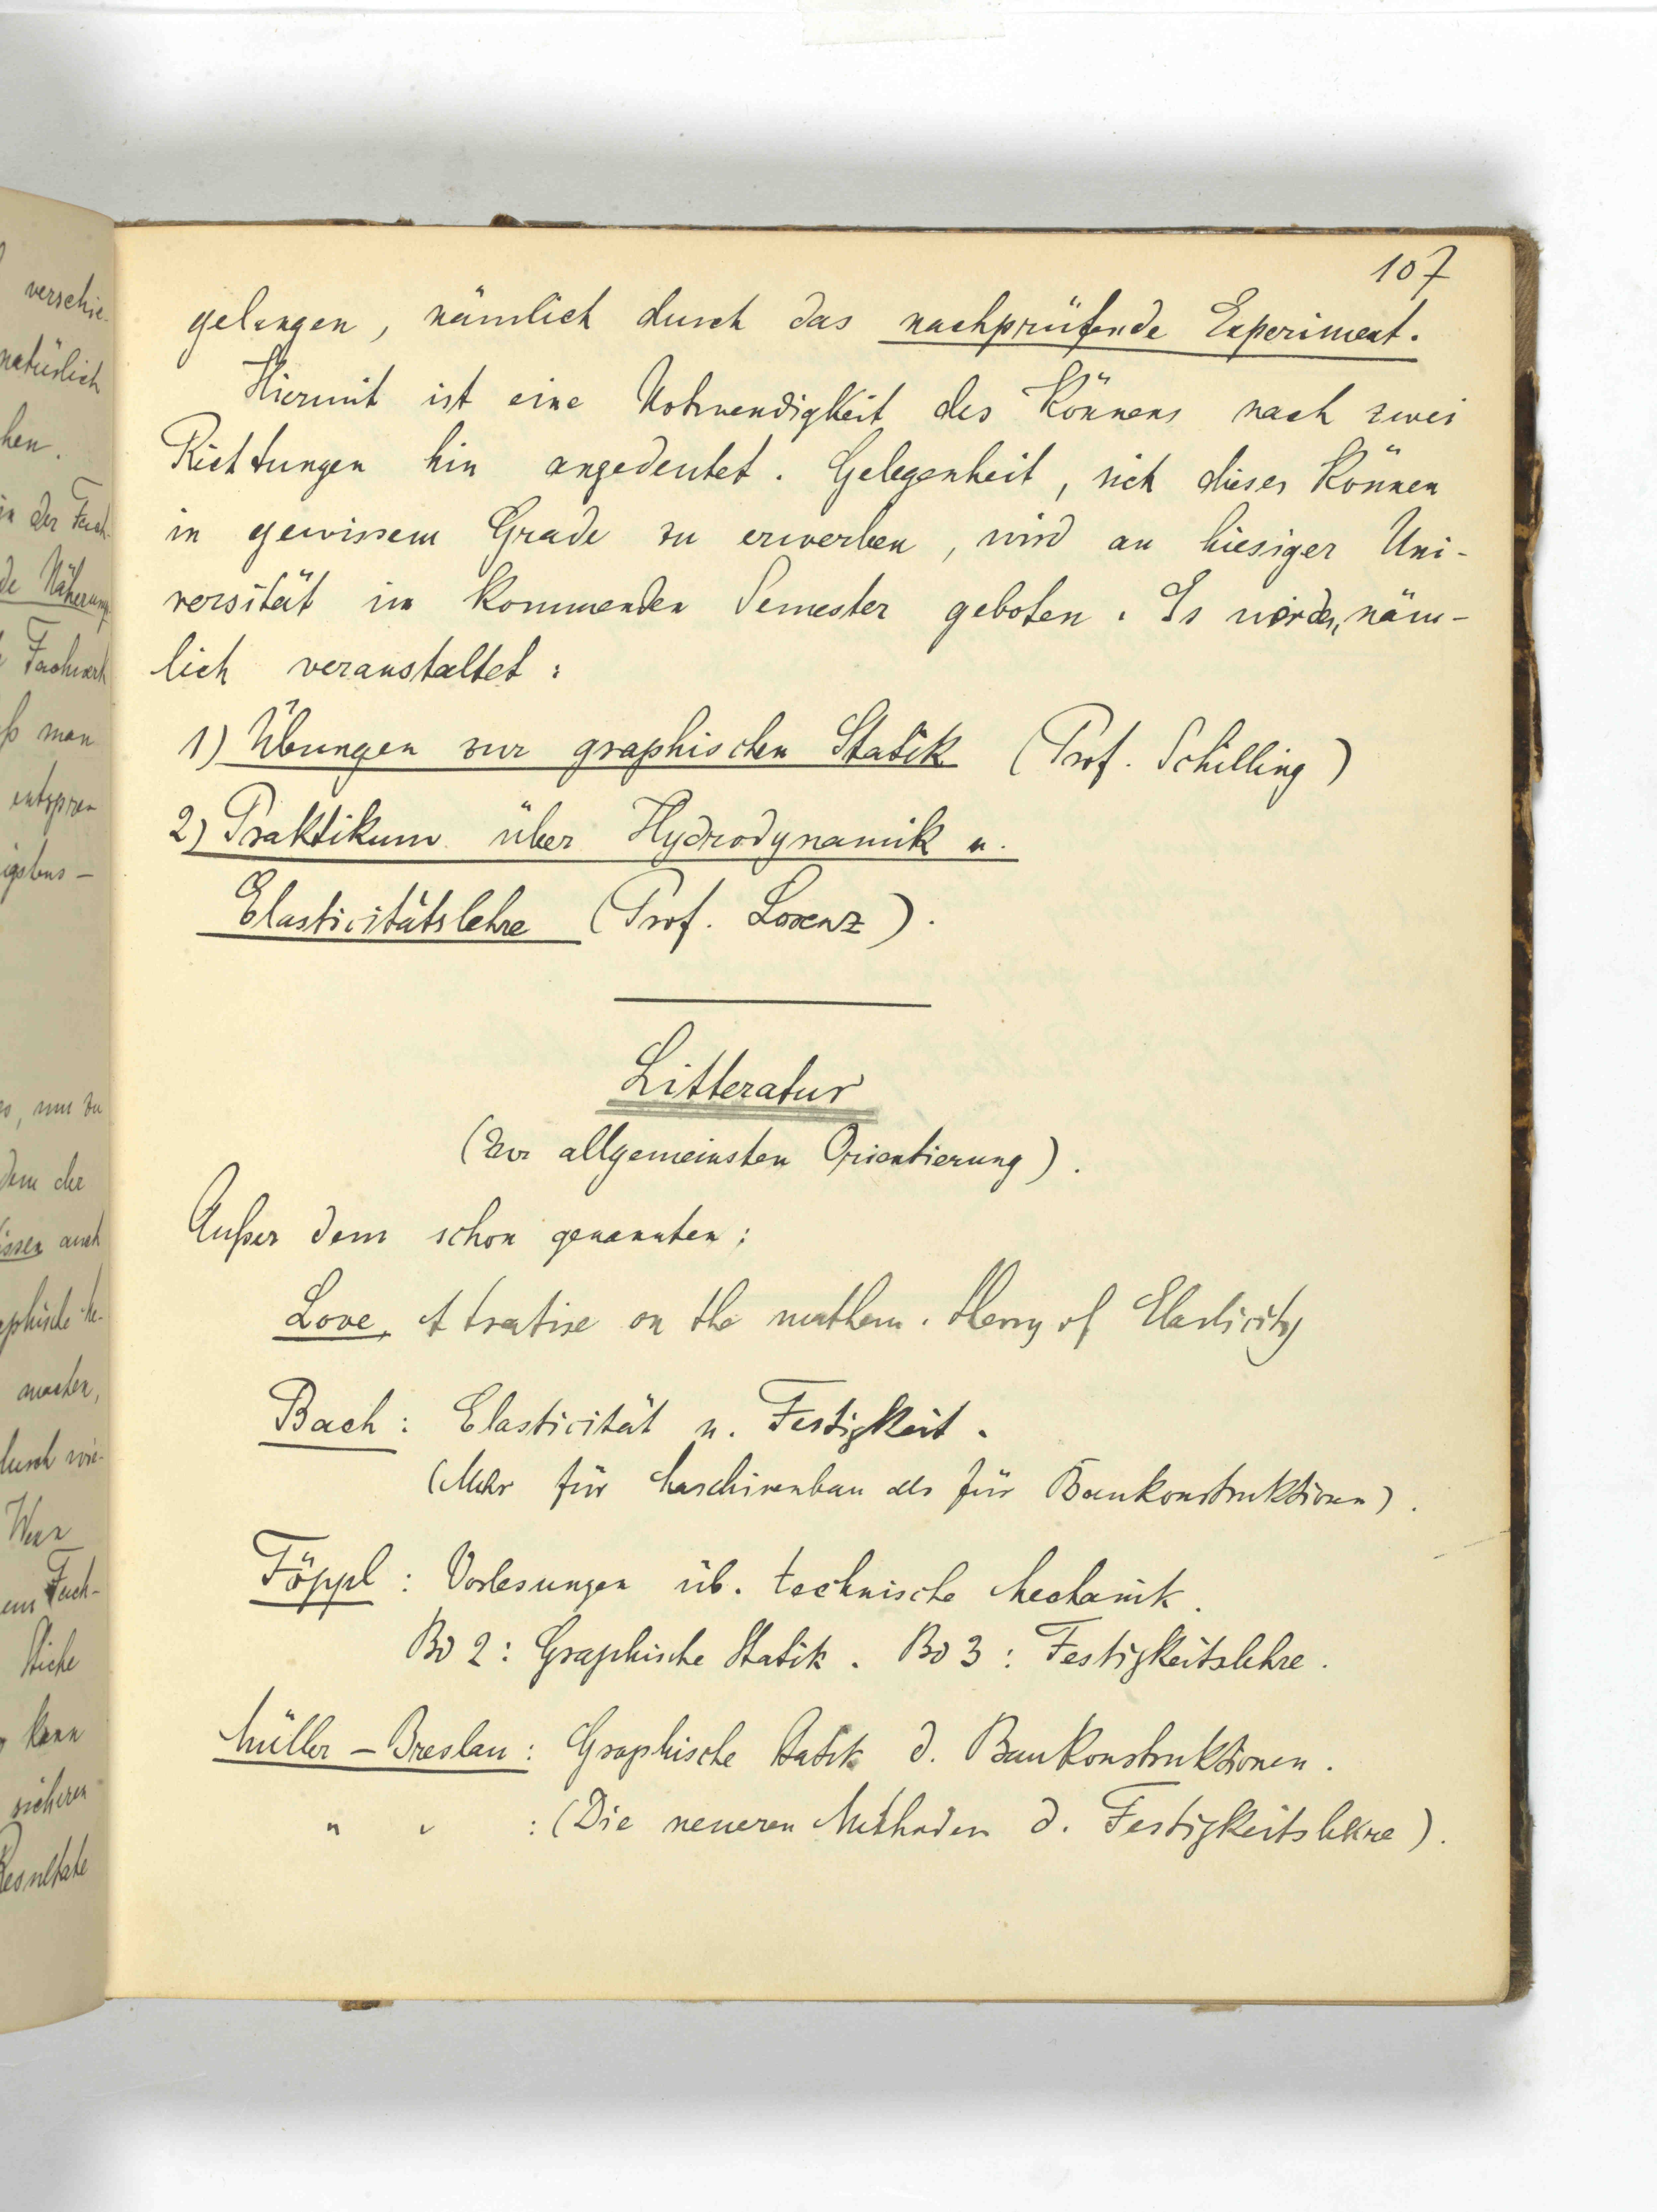 107
gelangen, nämlich durch das nachprüfende Experiment.
Hiermit ist eine Notwendigkeit des Könnens nach zwei
Richtungen hin angedeutet. Gelegenheit, sich dieses Können
in gewissem Grade zu erwerben, wird an hiesiger Uni-
versität im kommenden Semester geboten. Es werden näm-
lich veranstaltet:
1) Übungen zur graphischen Statik (Prof. Schilling)
2) Praktikum über Hydrodynamik u.
Elasticitätslehre (Prof. Lorenz).
Litteratur
(Zur allgemeinsten Orientierung).
Außer dem schon genannten:
Love, A treatise on the mathem. theory of Elasticity
Bach: Elasticität u. Festigkeit.
(Mehr für Maschinenbau als für Baukonstruktionen).
Föppl: Vorlesungen üb. technische Mechanik.
Bd 2: Graphische Statik. Bd 3: Festigkeitslehre.
Müller-Breslau: Graphische Statik d. Baukonstruktionen.
" " : (Die neueren Methoden d. Festigkeitslehre).
verschie-
natürlich
hen.
in der Fach-
de Näherung
Fachwerk
ß man
entspren
igstens -
dem die
issen auch
graphische
machen,
durch wie-
Wenn
em Fach-
kann
sicheren
Resultate